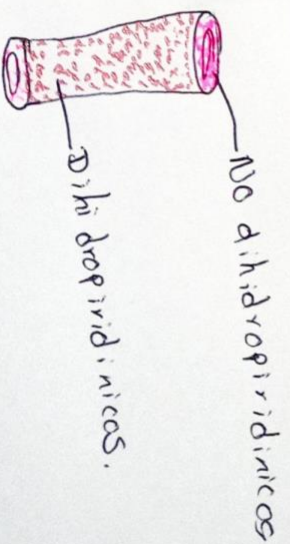 No dihidropiridinicos
Dihidropiridinicos.